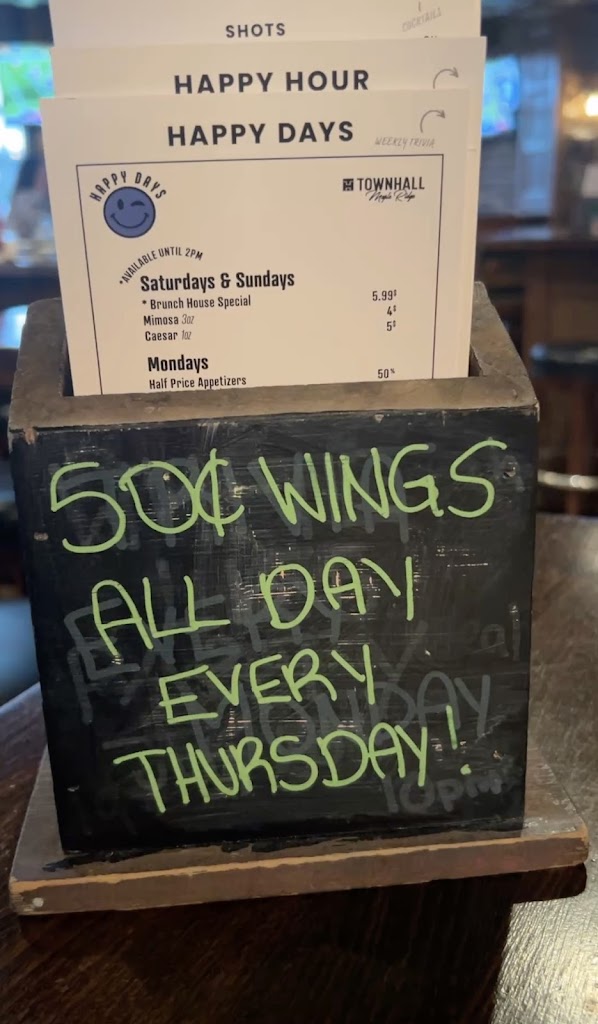 COCKTAILS
SHOTS
HAPPY HOUR
HAPPY DAYS
WEEKLY TRIVIA
HAPPY DAYS
TOWNHALL
Maple Ridge
*AVAILABLE UNTIL 2PM
Saturdays & Sundays
* Brunch House Special 5.99$
Mimosa 3oz 4$
Caesar 1oz 5$
Mondays
Half Price Appetizers 50%
50¢ WINGS
ALL DAY
EVERY
THURSDAY!